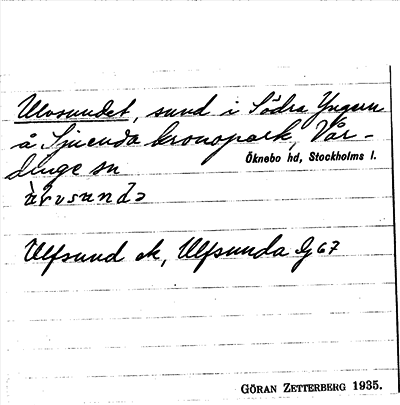 Ulvsundet, sund i Södra Yngern
å Sjuenda kronopark, Vår-
dinge sn
Öknebo hd, Stockholms l.
Ulfsund ek, Ulfsunda Gj 67
GÖRAN ZETTERBERG 1935.